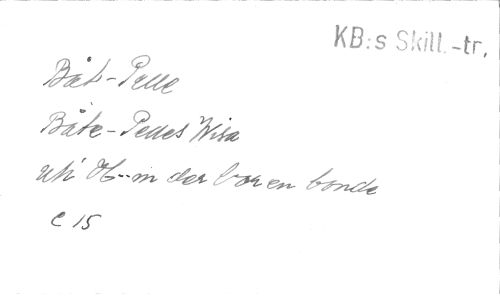 KB:s Skill.-tr.
Båt-Pelle
Båte-Pelles Wisa
uti H--m der bor en bonde
C 15